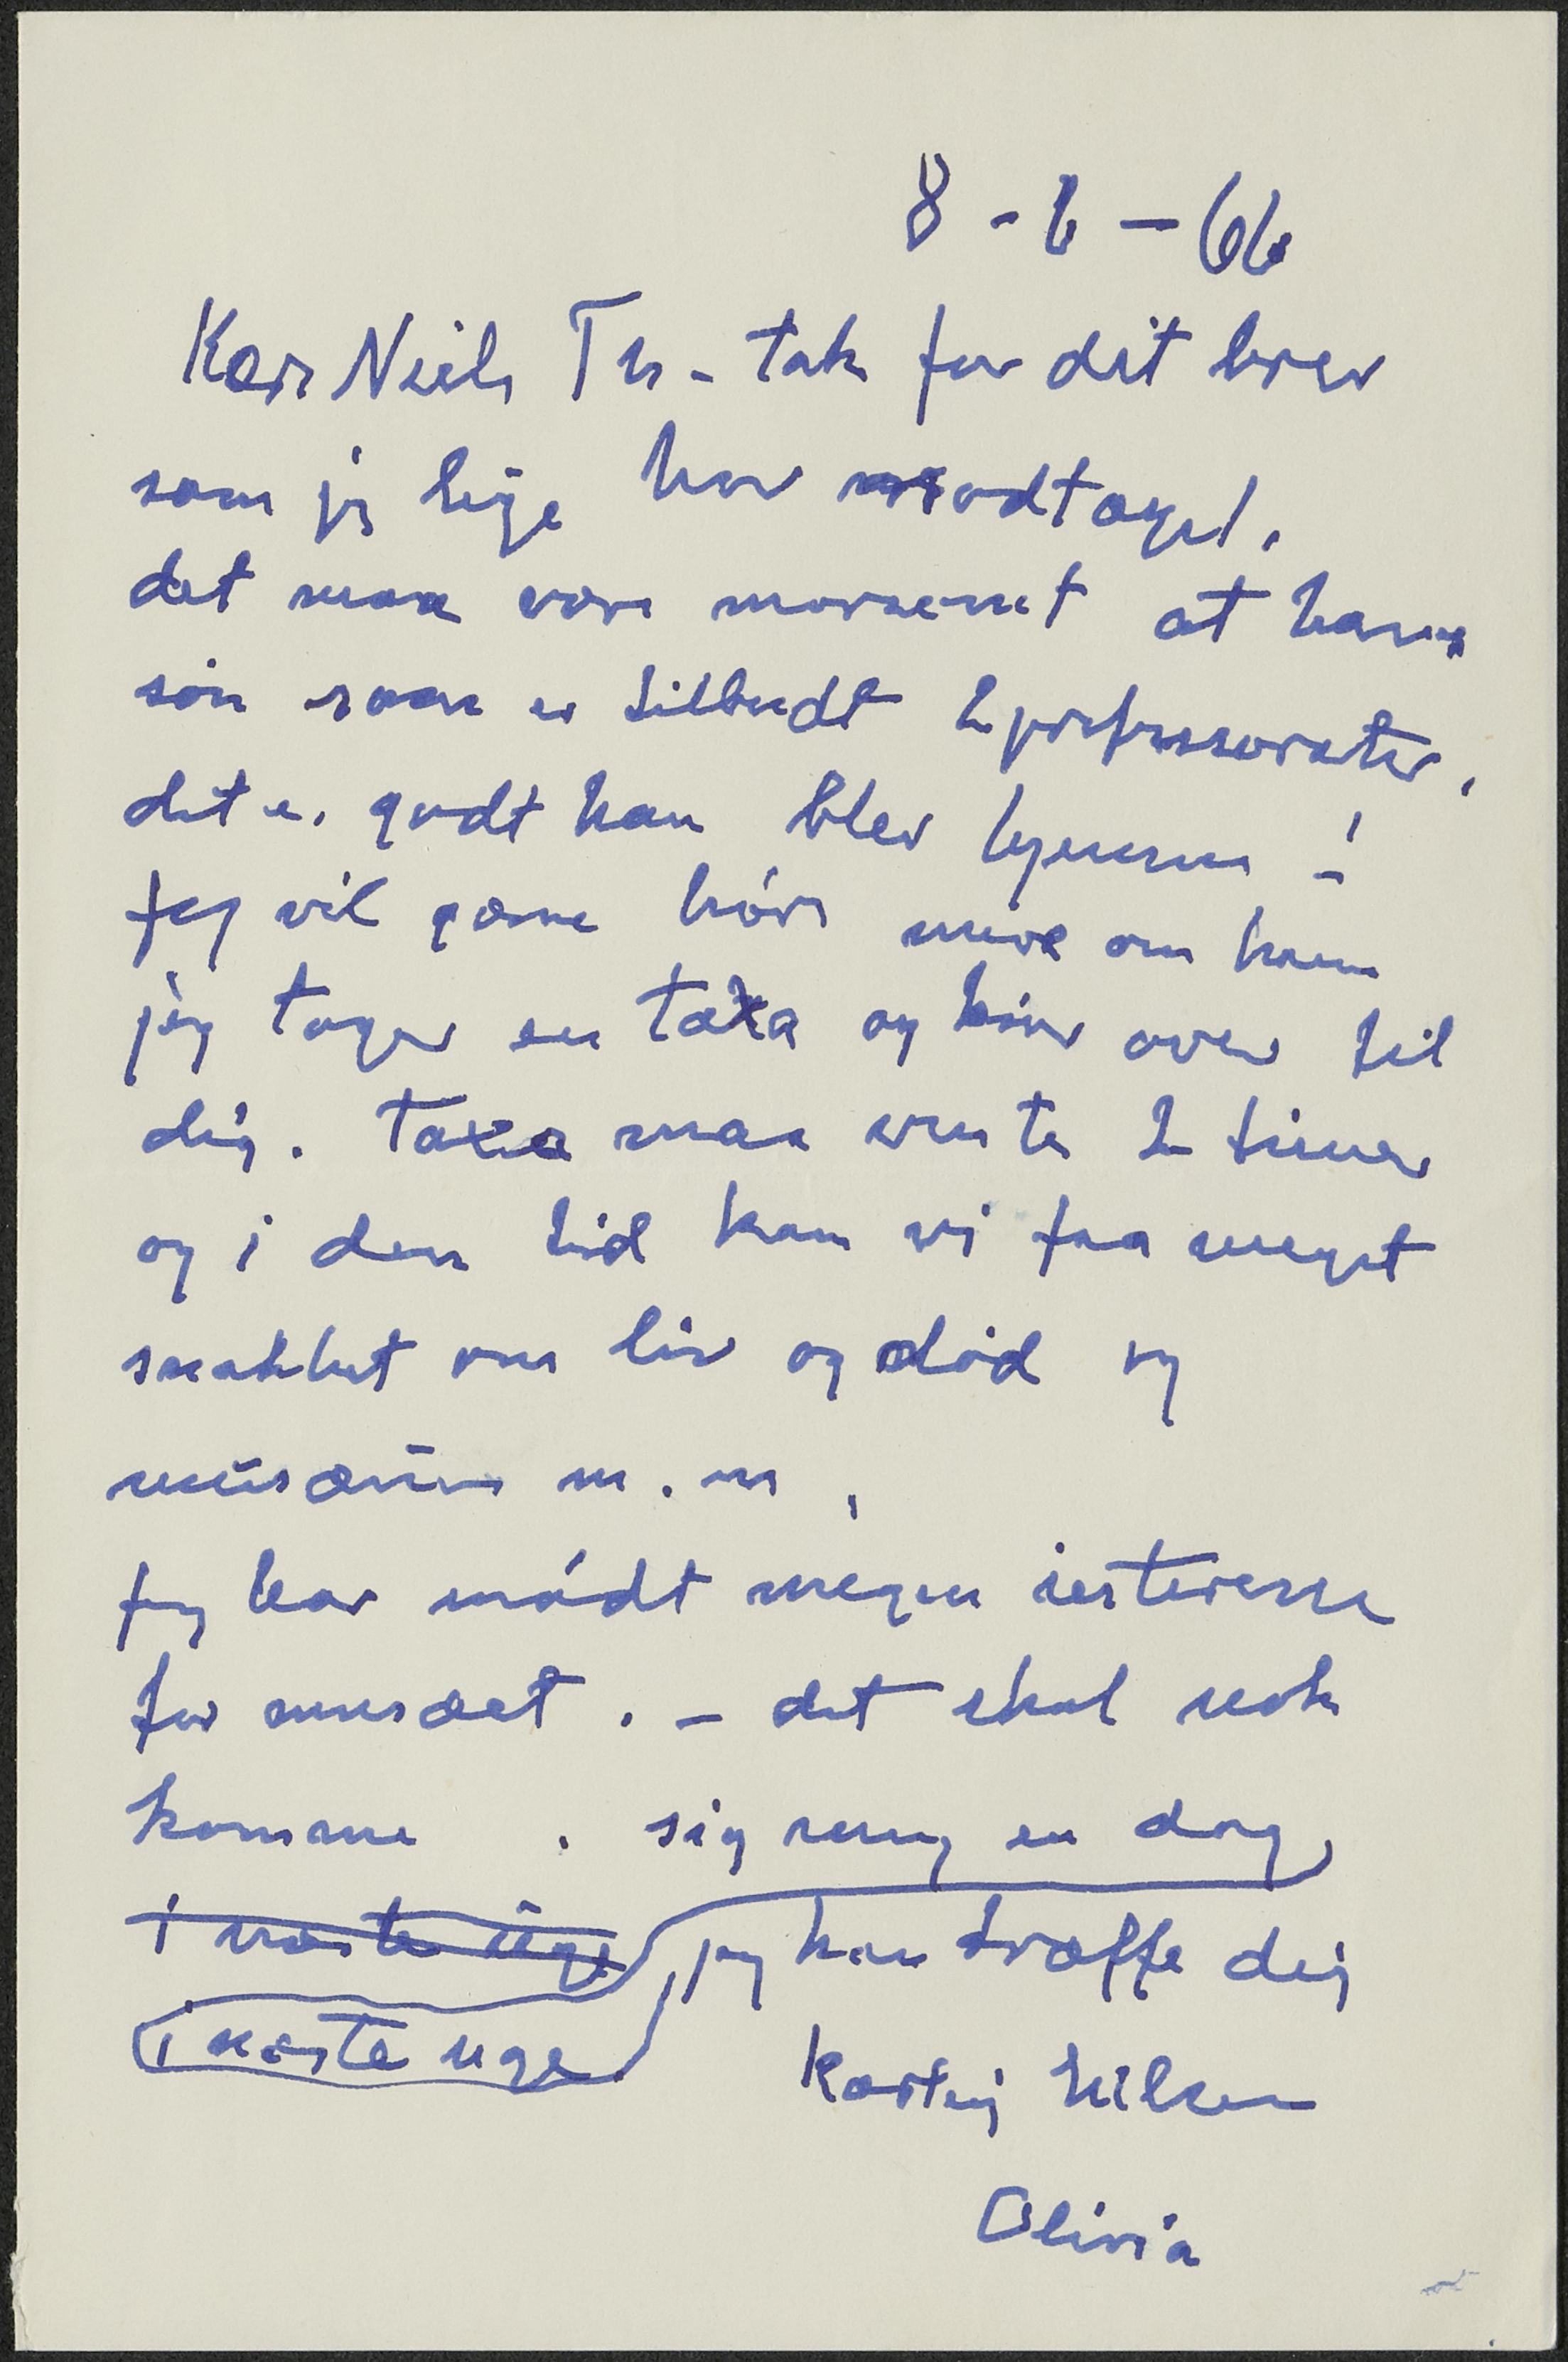 8-6-66
Kære Niels Th- tak for dit brev
som jeg lige har modtaget.
det maa være morsomt at have
søn som er tilbudt 2 professorater.
det er godt han blev
Jeg vil gærne høre mere om ham
jeg tager en taxa og kører over til
dig. Taxa maa vente 2 timer
og i den tid kan vi faa meget
snakket om liv og død og
musæum m.m.
Jeg har mødt megen interesse
for musæet. - det skal nok
komme. sig mig en dag
i næste uge jeg kan træffe dig
i næste uge
Kærlig hilsen
Olivia